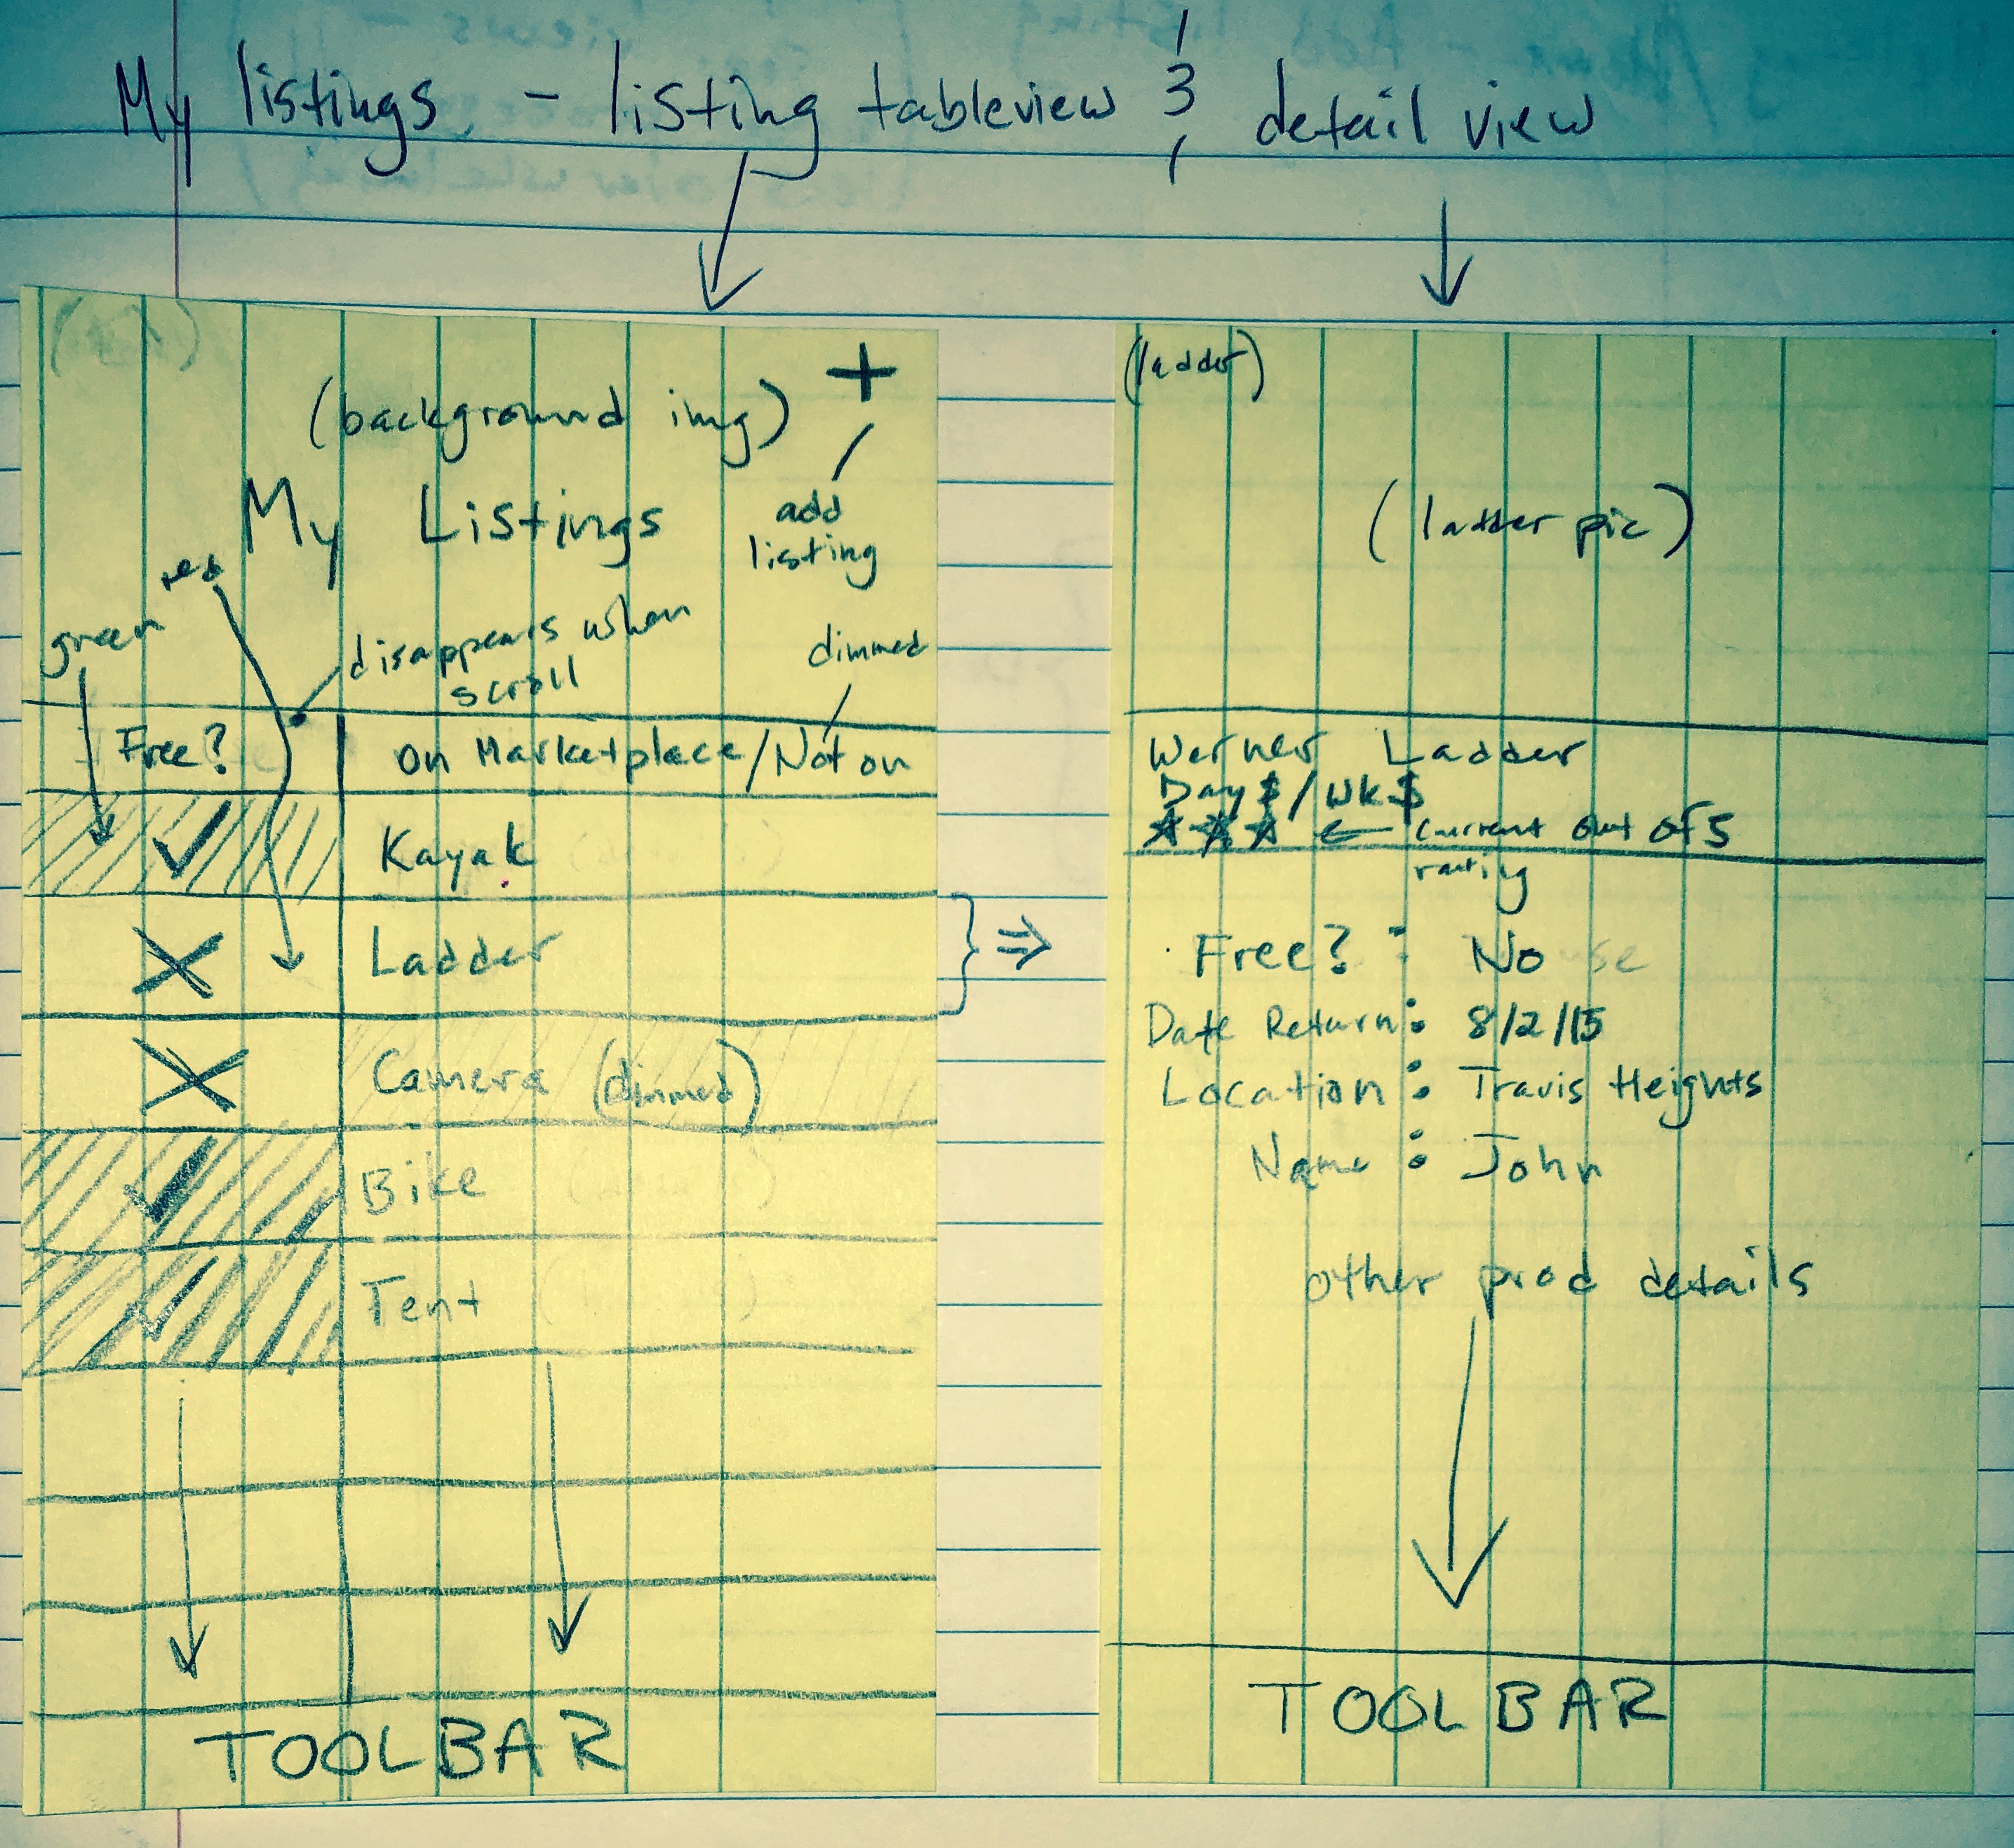 My listings - listing tableview & detail view
(background img) +
add
listing
My Listings
red
green
disappears when
scroll
dimmed
Free? On Marketplace/Not on
✓ Kayak
X Ladder
X Camera (dimmed)
✓ Bike
✓ Tent
TOOLBAR
(ladder)
(ladder pic)
Werner Ladder
Day $/Wk $
☆☆☆ ← current out of 5
rating
Free? : No
Date Return: 8/2/15
Location: Travis Heights
Name: John
other prod details
TOOLBAR